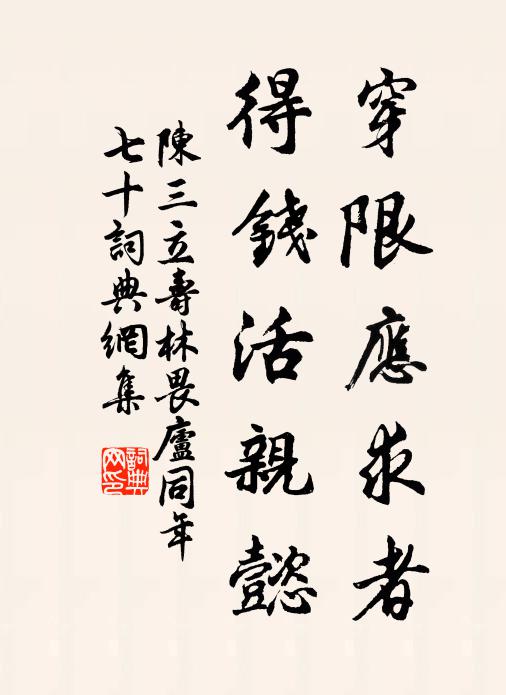 穿限應求者
得錢活親懿
陳三立壽林畏廬同年
七十詞典網集
詞典网印